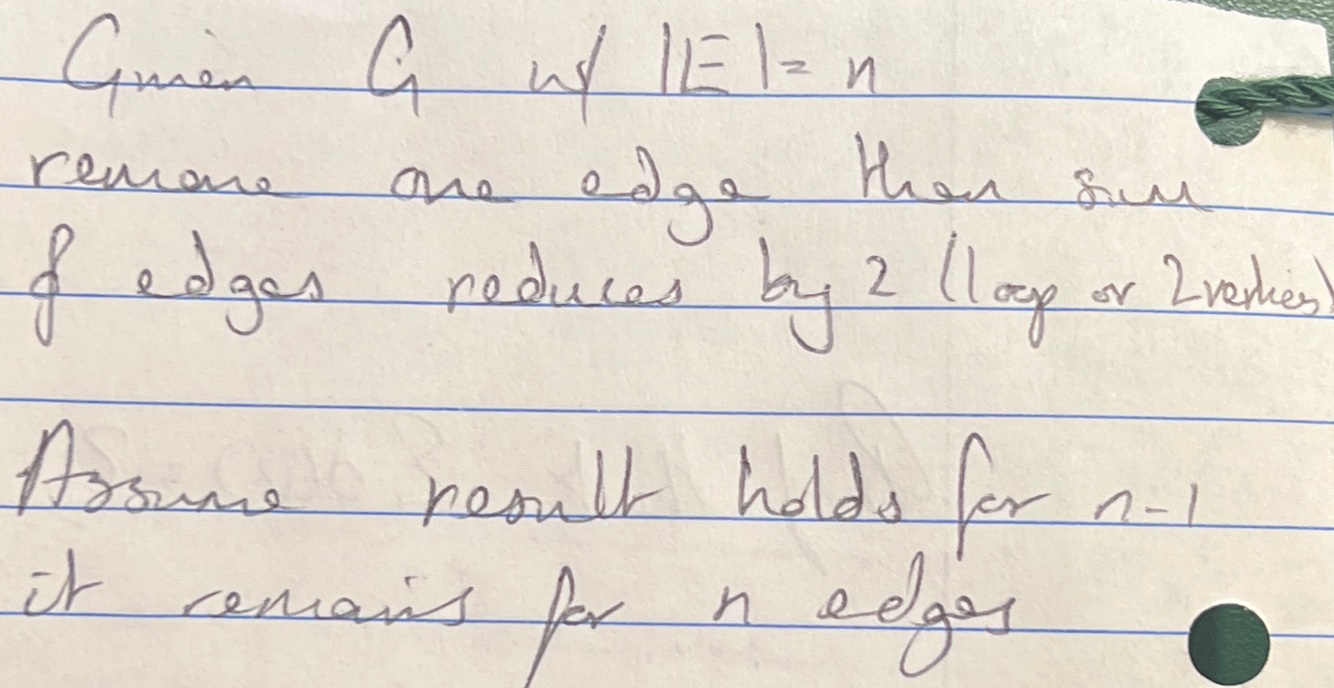 Given G w/ |E| = n
remove one edge then sum
of edges reduces by 2 (loop or 2 vertices)
Assume result holds for n-1
it remains for n edges